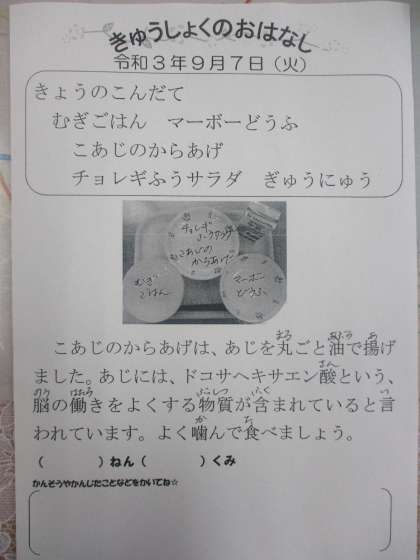 きゅうしょくのおはなし
令和３年９月７日（火）
きょうのこんだて
むぎごはん　マーボーどうふ
こあじのからあげ
チョレギふうサラダ　ぎゅうにゅう
チョレギ
ふうサラダ
こあじの
からあげ
むぎ
ごはん
マーボー
どうふ
こあじのからあげは、あじを丸ごと油で揚げ
ました。あじには、ドコサヘキサエン酸という、
脳の働きをよくする物質が含まれていると言
われています。よく噛んで食べましょう。
（　　　）ねん（　　　）くみ
かんそうやかんじたことなどをかいてね☆